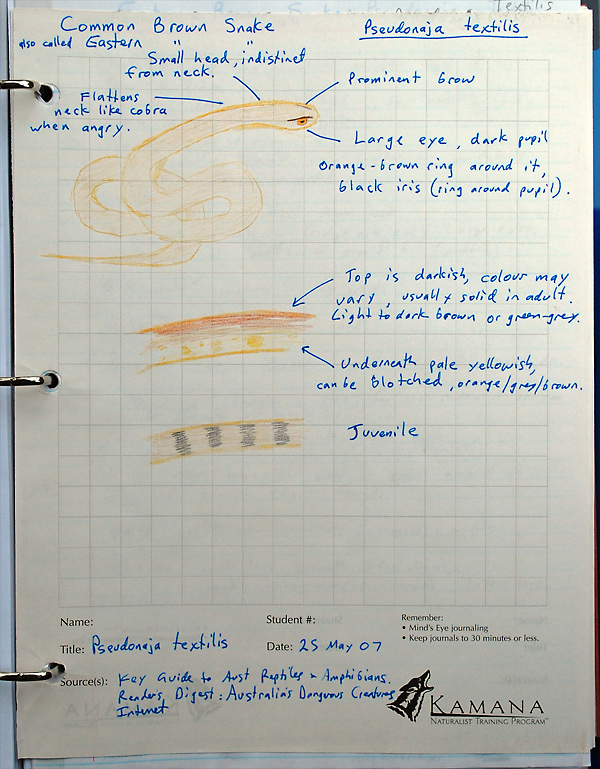 Textilis
Common Brown Snake
Pseudonaja textilis
also called Eastern " "
Small head, indistinct
from neck.
Prominent brow
Flattens
neck like cobra
when angry.
Large eye, dark pupil
Orange-brown ring around it,
black iris (ring around pupil).
Top is darkish, colour may
vary, usually solid in adult.
Light to dark brown or green-grey.
Underneath pale yellowish,
can be blotched, orange/grey/brown.
Juvenile
Name:
Student #:
Remember:
• Mind's Eye journaling
• Keep journals to 30 minutes or less.
Title: Pseudonaja textilis
Date: 25 May 07
Source(s): Key Guide to Aust Reptiles & Amphibians.
Readers Digest: Australia's Dangerous Creatures
Internet
KAMANA
NATURALIST TRAINING PROGRAM™